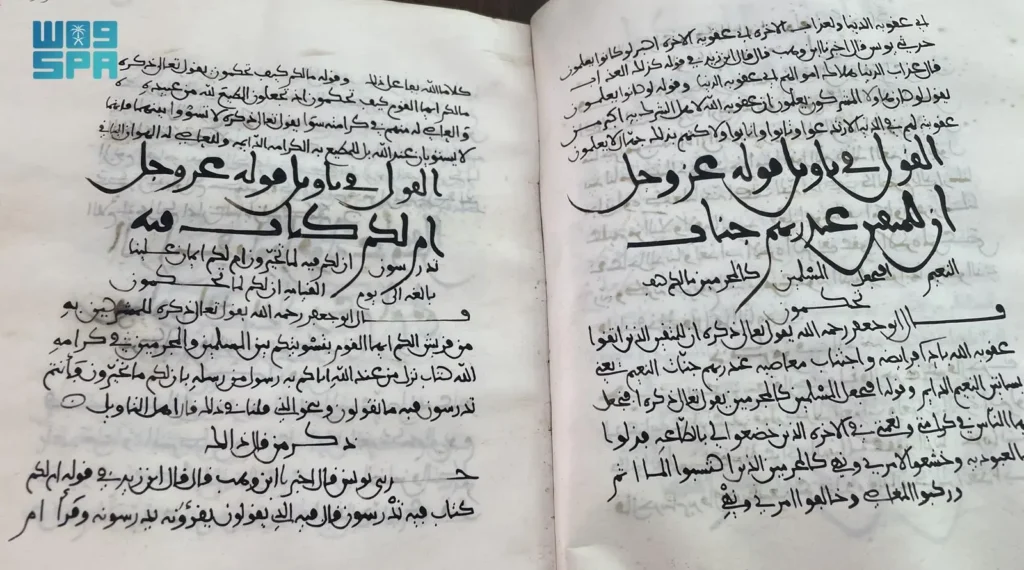 واس
SPA
في عقوبه الدنيا ولعذاب الاخره اي عقوبه الاخره اكبر لو كانوا يعلمون
حدثني يونس قال اخبرنا ابن وهب قال قال ابن زيد في قوله كذلك العذاب
قال عذاب الدنيا هلاك اموالهم اي عقوبه الدنيا وقوله لو كانوا يعلمون
يقول لو كان هاولا المشركون يعلمون ان عقوبه الله لاهل الشرك به اكبر من
عقوبته لهم في الدنيا لارتدعوا وتابوا وانابوا ولاكنهم بذلك جهال لا يعلمون
القول في تاويل قوله عز وجل
ان للمتقين عند ربهم جنات
النعيم افنجعل المسلمين كالمجرمين ما لكم كيف
تحكمون
قال ابو جعفر رحمه الله يقول تعالى ذكره ان للمتقين الذين اتقوا
عقوبه الله باداء فرايضه واجتناب معاصيه عند ربهم جنات النعيم يعني
بساتين النعيم الدايم وقوله افنجعل المسلمين كالمجرمين يقول تعالى ذكره افنجعل
ايها الناس في كرامتي ونعمتي في الاخره الذين خضعوا لي بالطاعه وذلوا
لي بالعبوديه وخشعوا لامري ونهيي كالمجرمين الذين اكتسبوا الماثم
وركبوا المعاصي وخالفوا امري ونهيي
وقوله ما لكم كيف تحكمون يقول تعالى ذكره
ما لكم ايها القوم كيف تحكمون اتجعلون المطيع لله من عبيده
والعاصي له منهم في كرامته سوا يقول تعالى ذكره لا تسووا بينهما فانهما
لا يستويان عند الله بل المطيع له الكرامه الدايمه والعاصي له الهوان الباقي
القول في تاويل قوله عز وجل
ام لكم كتاب فيه
تدرسون ان لكم فيه لما تخيرون ام لكم ايمان علينا
بالغه الى يوم القيامه ان لكم لما تحكمون
قال ابو جعفر رحمه الله يقول تعالى ذكره للمشركين به
من قريش الكم ايها القوم بتسويتكم بين المسلمين والمجرمين في كرامه
الله كتاب نزل من عند الله اتاكم به رسول من رسله بان لكم ما تخيرون فانتم
تدرسون فيه ما تقولون وبنحو الذي قلنا في ذلك قال اهل التاويل
ذكر من قال ذلك
حدثني يونس قال اخبرنا ابن وهب قال قال ابن زيد في قوله ام لكم
كتاب فيه تدرسون قال فيه الذي يقولون يقرؤونه يدرسونه وقرأ ام